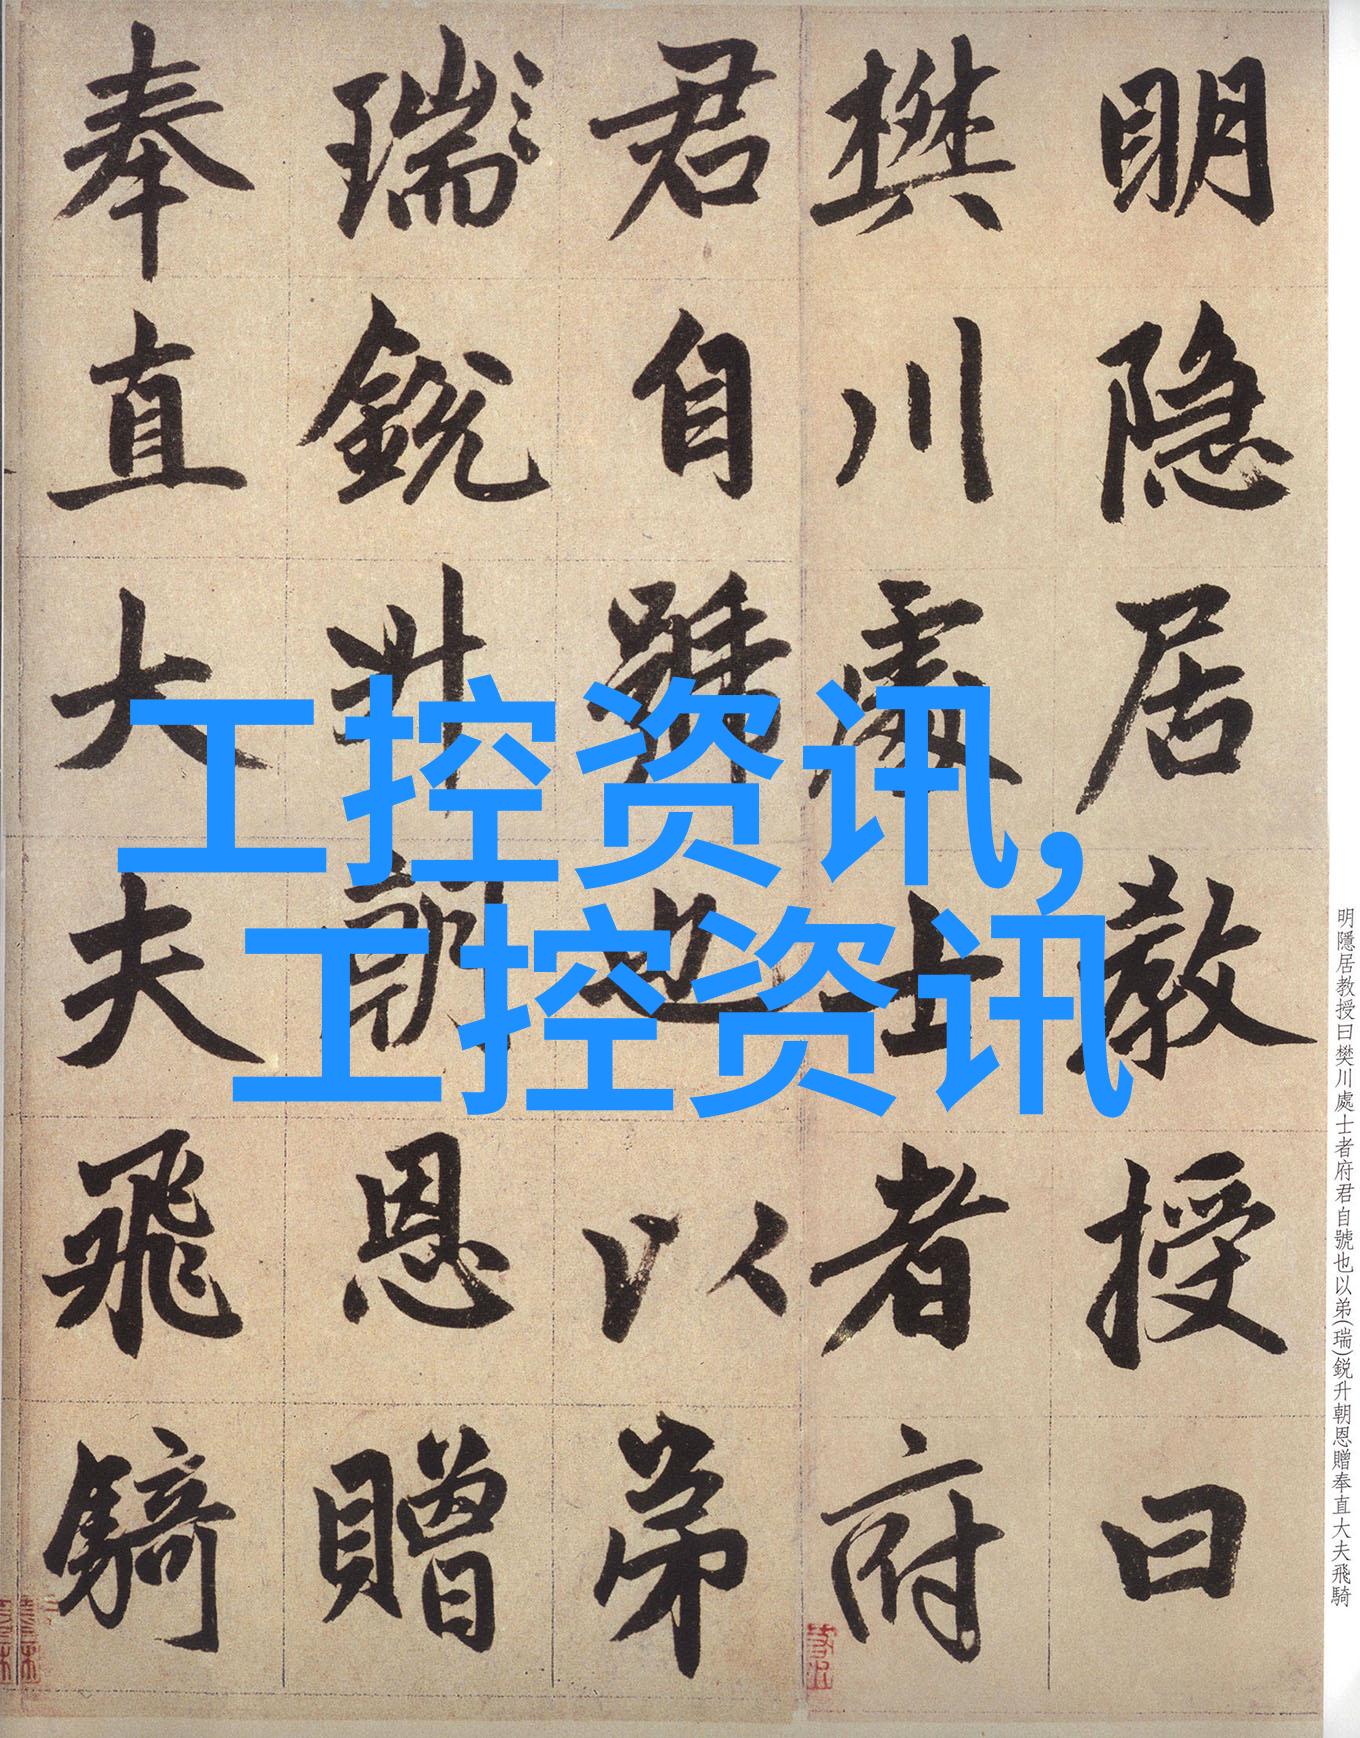 工控资讯，
工控资讯
明隱居教授曰
樊川處士者府
君自號也以弟
瑞銳升朝恩贈
奉直大夫飛騎
明隱居教授曰樊川處士者府君自號也以弟(瑞)銳升朝恩贈奉直大夫飛騎